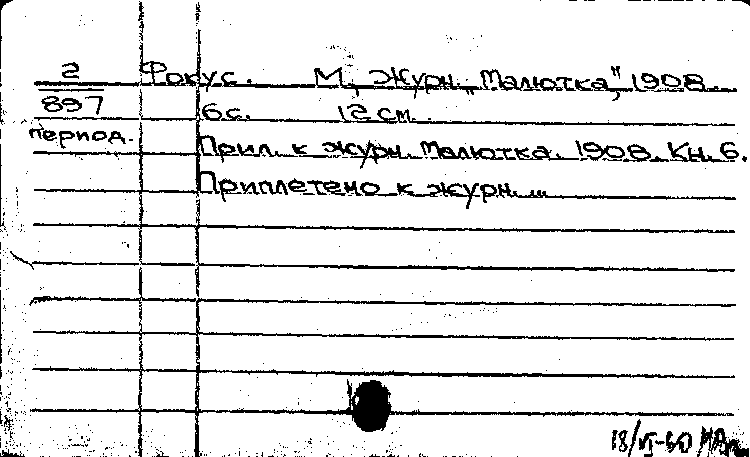 2 Фокус. М, Журн. „Малютка", 1908.
897 6 с. 12 см.
период.
Прил. к журн. Малютка. 1908. Кн. 6.
Приплетено к журн. ...
18/VI-60